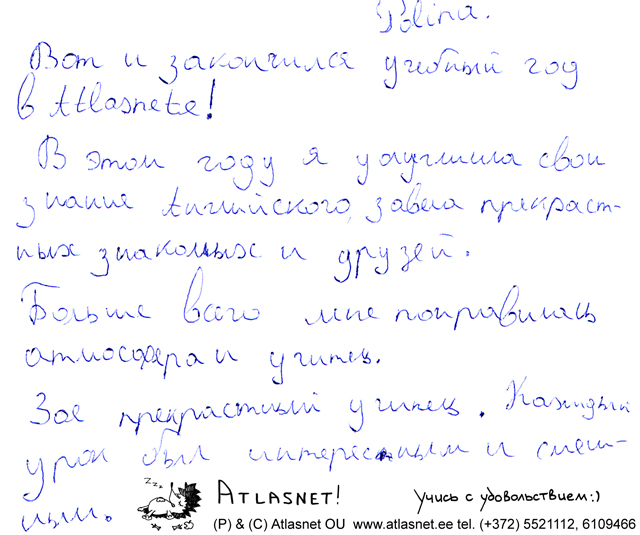 Polina.
Вот и закончился учебный год
в Atlasnete!
В этом году я улучшила свои
знание Английского, завела прекраст-
ных знакомых и друзей.
Больше всего мне понравилась
атмосфера и учитец.
Зое прекрастный учитец. Каждый
урок был интересным и смеш-
ным.
zzz
ATLASNET! Учись с удовольствием:)
(P) & (C) Atlasnet OU www.atlasnet.ee tel. (+372) 5521112, 6109466